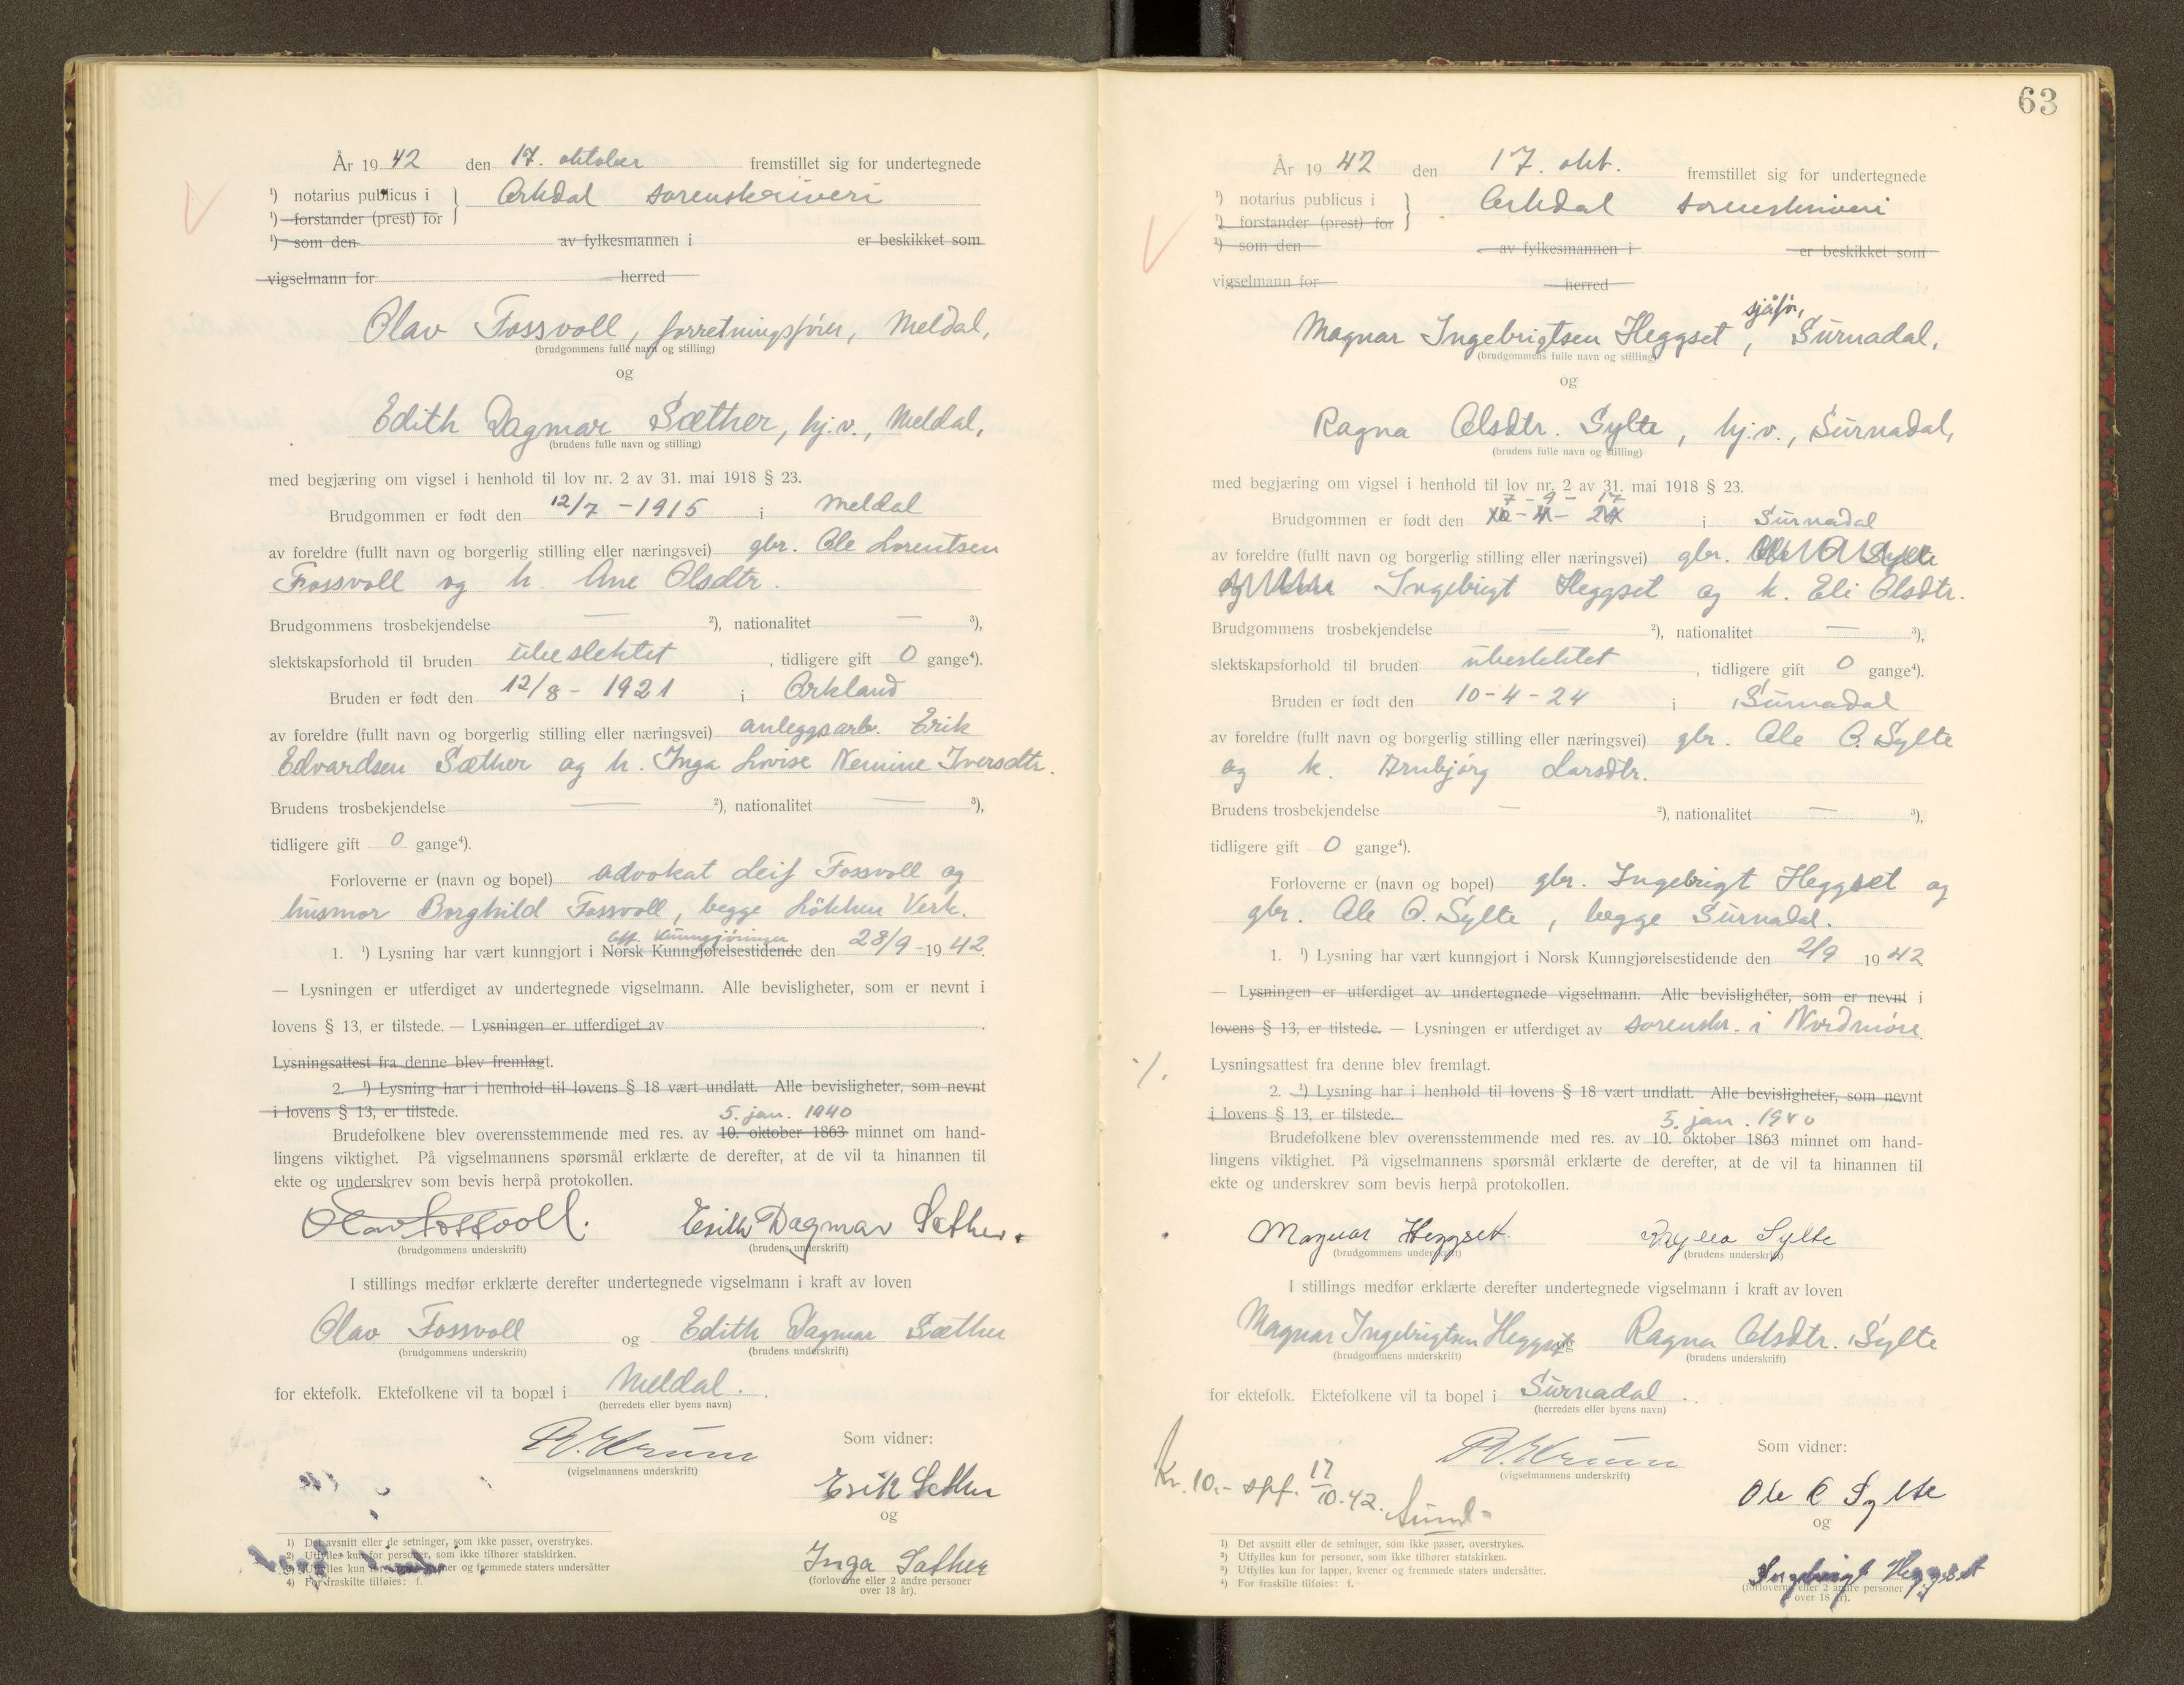 År 19 42 den 17. oktober fremstillet sig for undertegnede
¹) notarius publicus i } Orkdal sorenskriveri
¹) forstander (prest) for
¹) som den av fylkesmannen i er beskikket som
vigselmann for herred
Olav Fossvoll, forretningsfører, Meldal,
(brudgommens fulle navn og stilling)
og
Edith Dagmar Sæther, hj.v., Meldal,
(brudens fulle navn og stilling)
med begjæring om vigsel i henhold til lov nr. 2 av 31. mai 1918 § 23.
Brudgommen er født den 12/7 - 1915 i Meldal
av foreldre (fullt navn og borgerlig stilling eller næringsvei) gbr. Ole Lorentsen
Fossvoll og h. Ane Olsdtr.
Brudgommens trosbekjendelse — ²), nationalitet — ³),
slektskapsforhold til bruden ubeslektet, tidligere gift 0 gange⁴).
Bruden er født den 12/8 - 1921 i Orkland
av foreldre (fullt navn og borgerlig stilling eller næringsvei) anleggsarb. Erik
Edvardsen Sæther og h. Inga Lovise Nemine Iversdtr.
Brudens trosbekjendelse — ²), nationalitet — ³),
tidligere gift 0 gange⁴).
Forloverne er (navn og bopel) advokat Leif Fossvoll og
husmor Borghild Fossvoll, begge Løkken Verk.
Off. Kunngjøringer
1. ¹) Lysning har vært kunngjort i Norsk Kunngjørelsestidende den 28/9 - 19 42.
— Lysningen er utferdiget av undertegnede vigselmann. Alle bevisligheter, som er nevnt i
lovens § 13, er tilstede. — Lysningen er utferdiget av .
Lysningsattest fra denne blev fremlagt.
2. ¹) Lysning har i henhold til lovens § 18 vært undlatt. Alle bevisligheter, som nevnt
i lovens § 13, er tilstede.
5. jan. 1940
Brudefolkene blev overensstemmende med res. av 10. oktober 1863 minnet om hand-
lingens viktighet. På vigselmannens spørsmål erklærte de derefter, at de vil ta hinannen til
ekte og underskrev som bevis herpå protokollen.
Olav Fossvoll. Edith Dagmar Sæther.
(brudgommens underskrift) (brudens underskrift)
I stillings medfør erklærte derefter undertegnede vigselmann i kraft av loven
Olav Fossvoll og Edith Dagmar Sæther
(brudgommens underskrift) (brudens underskrift)
for ektefolk. Ektefolkene vil ta bopæl i Meldal.
(herredets eller byens navn)
Som vidner:
(vigselmannens underskrift)
Erik Sæther
og
Inga Sæther
(forloverne eller 2 andre personer
over 18 år).
1) Det avsnitt eller de setninger, som ikke passer, overstrykes.
2) Utfylles kun for personer, som ikke tilhører statskirken.
3) Utfylles kun for lapper, kvener og fremmede staters undersåtter
4) For fraskilte tilføies: f.
63
År 19 42 den 17. okt. fremstillet sig for undertegnede
¹) notarius publicus i } Orkdal sorenskriveri
¹) forstander (prest) for
¹) som den av fylkesmannen i er beskikket som
vigselmann for herred
sjåfør,
Magnar Ingebrigtsen Heggset, Surnadal,
(brudgommens fulle navn og stilling)
og
Ragna Olsdtr. Sylte, hj.v., Surnadal,
(brudens fulle navn og stilling)
med begjæring om vigsel i henhold til lov nr. 2 av 31. mai 1918 § 23.
7 - 9 - 17
Brudgommen er født den 10 - 4 - 24 i Surnadal
av foreldre (fullt navn og borgerlig stilling eller næringsvei) gbr. Ole O. Sylte
Ingebrigt Heggset og k. Eli Olsdtr.
Brudgommens trosbekjendelse — ²), nationalitet — ³),
slektskapsforhold til bruden ubeslektet, tidligere gift 0 gange⁴).
Bruden er født den 10 - 4 - 24 i Surnadal
av foreldre (fullt navn og borgerlig stilling eller næringsvei) gbr. Ole O. Sylte
og k. Brubjørg Larsdtr.
Brudens trosbekjendelse — ²), nationalitet — ³),
tidligere gift 0 gange⁴).
Forloverne er (navn og bopel) gbr. Ingebrigt Heggset og
gbr. Ole O. Sylte, begge Surnadal.
1. ¹) Lysning har vært kunngjort i Norsk Kunngjørelsestidende den 2/9 19 42
— Lysningen er utferdiget av undertegnede vigselmann. Alle bevisligheter, som er nevnt i
lovens § 13, er tilstede. — Lysningen er utferdiget av sorenskr. i Nordmøre.
Lysningsattest fra denne blev fremlagt.
2. ¹) Lysning har i henhold til lovens § 18 vært undlatt. Alle bevisligheter, som nevnt
i lovens § 13, er tilstede.
5. jan. 1940
Brudefolkene blev overensstemmende med res. av 10. oktober 1863 minnet om hand-
lingens viktighet. På vigselmannens spørsmål erklærte de derefter, at de vil ta hinannen til
ekte og underskrev som bevis herpå protokollen.
Magnar Heggset. Ragna Sylte
(brudgommens underskrift) (brudens underskrift)
I stillings medfør erklærte derefter undertegnede vigselmann i kraft av loven
Magnar Ingebrigtsen Heggset og Ragna Olsdtr. Sylte
(brudgommens underskrift) (brudens underskrift)
for ektefolk. Ektefolkene vil ta bopel i Surnadal.
(herredets eller byens navn)
Som vidner:
(vigselmannens underskrift)
Kr. 10.- opf. 17/10.42.
Ole O Sylte
og
Ingebrigt Heggset
(forloverne eller 2 andre personer
over 18 år).
1) Det avsnitt eller de setninger, som ikke passer, overstrykes.
2) Utfylles kun for personer, som ikke tilhører statskirken.
3) Utfylles kun for lapper, kvener og fremmede staters undersåtter.
4) For fraskilte tilføies: f.